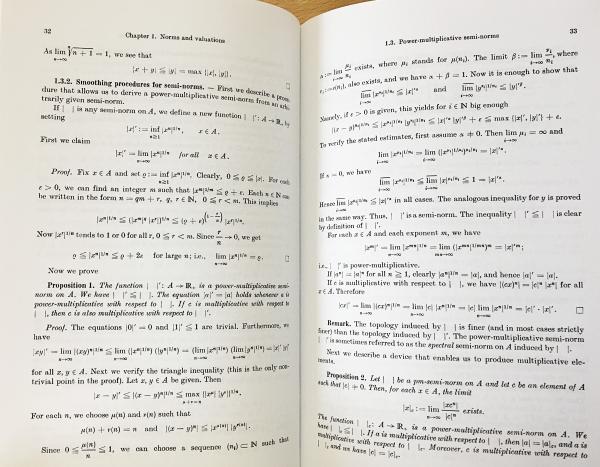 32
Chapter 1. Norms and valuations
As lim_{n→∞} ⁿ√(n + 1) = 1, we see that
|x + y| ≦ |y| = max {|x|, |y|}.
1.3.2. Smoothing procedures for semi-norms. — First we describe a procedure
dure that allows us to derive a power-multiplicative semi-norm from an arbi-
trarily given semi-norm.
If | | is any semi-norm on A, we define a new function | |': A → R₊ by
setting
|x|' := inf_{n≧1} |xⁿ|^{1/n}, x ∈ A.
First we claim
|x|' = lim_{n→∞} |xⁿ|^{1/n} for all x ∈ A.
Proof. Fix x ∈ A and set ϱ := inf_{n≧1} |xⁿ|^{1/n}. Clearly, 0 ≦ ϱ ≦ |x|. For each
ε > 0, we can find an integer m such that |x^m|^{1/m} ≦ ϱ + ε. Each n ∈ N can
be written in the form n = qm + r, q, r ∈ N, 0 ≦ r < m. This implies
Now |x^r|^{1/n} tends to 1 or 0 for all r, 0 ≦ r < m. Since r/n → 0, we get
ϱ ≦ |xⁿ|^{1/n} ≦ ϱ + 2ε for large n; i.e., lim_{n→∞} |xⁿ|^{1/n} = ϱ. □
Now we prove
Proposition 1. The function | |': A → R₊ is a power-multiplicative semi-
norm on A. We have | |' ≦ | |. The equation |a|' = |a| holds whenever a is
power-multiplicative with respect to | |. If c is multiplicative with respect to
| |, then c is also multiplicative with respect to | |'.
Proof. The equations |0|' = 0 and |1|' ≦ 1 are trivial. Furthermore, we
have
|xy|' = lim_{n→∞} |(xy)ⁿ|^{1/n} ≦ lim_{n→∞} (|xⁿ|^{1/n}) (|yⁿ|^{1/n}) = (lim_{n→∞} |xⁿ|^{1/n}) (lim_{n→∞} |yⁿ|^{1/n}) = |x|' |y|'
for all x, y ∈ A. Next we verify the triangle inequality (this is the only non-
trivial point in the proof). Let x, y ∈ A be given. Then
For each n, we choose μ(n) and ν(n) such that
μ(n) + ν(n) = n and |(x − y)ⁿ| ≦ |x^{μ(n)}| |y^{ν(n)}|.
Since 0 ≦ μ(n)/n ≦ 1, we can choose a sequence (nᵢ) ⊂ N such that
1.3. Power-multiplicative semi-norms
33
α := lim_{i→∞} μᵢ/nᵢ exists, where μᵢ stands for μ(nᵢ). The limit β := lim_{i→∞} νᵢ/nᵢ, where
νᵢ := ν(nᵢ), also exists, and we have α + β = 1. Now it is enough to show that
and
Namely, if ε > 0 is given, this yields for i ∈ N big enough
To verify the stated estimates, first assume α ≠ 0. Then lim_{i→∞} μᵢ = ∞ and
If α = 0, we have
in all cases. The analogous inequality for y is proved
in the same way. Thus, | |' is a semi-norm. The inequality | |' ≦ | | is clear
by definition of | |'.
For each x ∈ A and each exponent m, we have
|x^m|' = lim_{n→∞} |x^{mn}|^{1/n} = lim_{n→∞} (|x^{mn}|^{1/mn})^m = |x|'^m;
i.e., | |' is power-multiplicative.
If |aⁿ| = |a|ⁿ for all n ≧ 1, clearly |aⁿ|^{1/n} = |a|, and hence |a|' = |a|.
If c is multiplicative with respect to | |, we have |(cx)ⁿ| = |c|ⁿ |xⁿ| for all
x ∈ A. Therefore
|cx|' = lim_{n→∞} |(cx)ⁿ|^{1/n} = lim_{n→∞} |c| |xⁿ|^{1/n} = |c| lim_{n→∞} |xⁿ|^{1/n} = |c|' · |x|'. □
Remark. The topology induced by | | is finer (and in most cases strictly
finer) than the topology induced by | |'. The power-multiplicative semi-norm
| |' is sometimes referred to as the spectral semi-norm on A induced by | |.
Next we describe a device that enables us to produce multiplicative ele-
ments.
Proposition 2. Let | | be a pm-semi-norm on A and let c be an element of A
such that |c| ≠ 0. Then, for each x ∈ A, the limit
|x|_c := lim_{n→∞} |xcⁿ|/|c|ⁿ exists.
The function | |_c: A → R₊ is a power-multiplicative semi-norm on A. We
have | |_c ≦ | |. If a is multiplicative with respect to | |, then |a| = |a|_c, and a is
multiplicative with respect to | |_c. Moreover, c is multiplicative with respect to
| |_c and we have |c| = |c|_c.